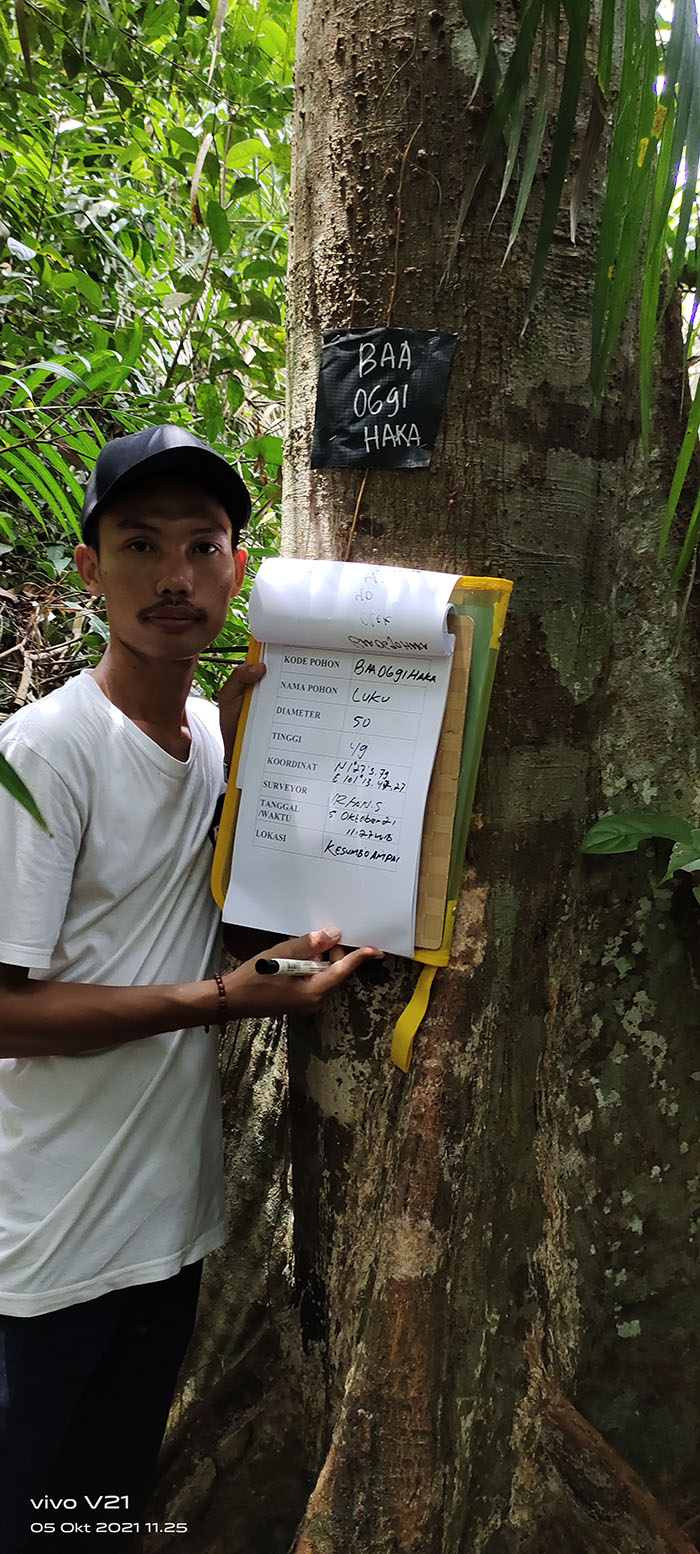 BAA
0691
HAKA
KODE POHON BAA0691HAKA
NAMA POHON LUKU
DIAMETER 50
TINGGI 49
KOORDINAT N 1°27'5.79
E 101°13'.47.27
SURVEYOR KHAN.S
TANGGAL 5 Oktober 21
/WAKTU 11:27 WIB
LOKASI KESUMBO AMPAI
vivo V21
05 Okt 2021 11.25